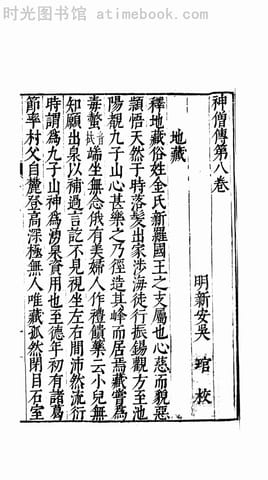 时光图书馆 - atimebook.com
神僧傳第八卷
明新安吳琯校
地藏
釋地藏俗姓金氏新羅國王之支屬也心慈而貌惡
穎悟天然于時落髮出家涉海徒行振錫觀方至池
陽覩九子山心甚樂之乃徑造其峰而居焉藏嘗爲
毒螫端坐無念俄有美婦人作禮饋藥云小兒無
知願出泉以補過言訖不見視坐左右間沛然流衍
時謂爲九子山神爲湧泉資用也至德年初有諸葛
節率村父自麓登高深極無人唯藏孤然閉目石室